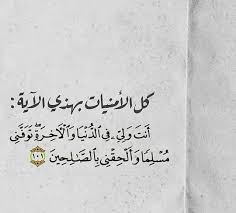 كل الأمنيات بهذي الآية :
أَنتَ وَلِيِّۦ فِي ٱلدُّنۡيَا وَٱلۡأٓخِرَةِۖ تَوَفَّنِي
مُسۡلِمٗا وَأَلۡحِقۡنِي بِٱلصَّٰلِحِينَ ١٠١